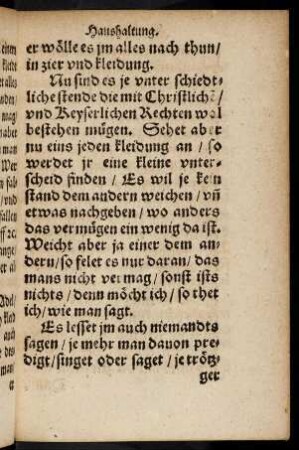 Haushaltung.
er wölle es jm alles nach thun/
in zier vnd kleidung.
Nu sind es je vnter schiedt-
liche stende die mit Christlichē/
vnd Keyserlichen Rechten wol
bestehen mügen. Sehet aber
nu eins jeden kleidung an / so
werdet jr eine kleine vnter-
scheid finden / Es wil je kein
stand dem andern weichen / vñ
etwas nachgeben / wo anders
das vermügen ein wenig da ist.
Weicht aber ja einer dem an-
dern / so felet es nur daran / das
mans nicht vermag / sonst ists
nichts / denn möcht ich / so thet
ich / wie man sagt.
Es lesset jm auch niemandts
sagen / je mehr man dauon pre-
digt / singet oder saget / je trötz-
ger